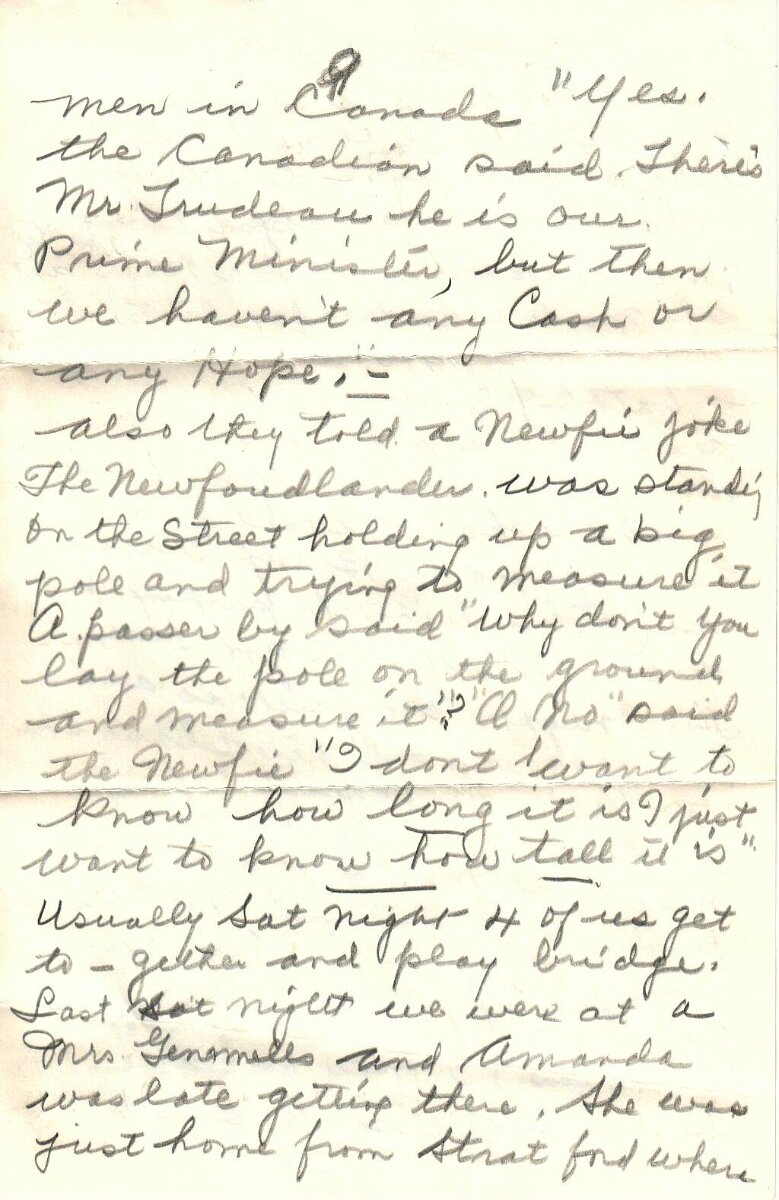 9
men in Canada "Yes.
the Canadian said. There's
Mr. Trudeau he is our
Prime Minister, but then
we haven't any Cash or
any Hope."
also they told a Newfie joke
The Newfoudlander. was standig
on the Street holding up a big
pole and trying to measure it
A. passer by said "why don't you
lay the pole on the ground
and measure it"? "O No" said
the Newfie "I don't want to
know how long it is I just
want to know how tall it is"
Usually Sat night 4 of us get
to-gether and play bridge.
Last Sat night we were at a
Mrs. and Amanda
was late getting there. She was
just home from Strat ford where